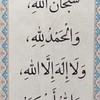 سُبْحَانَ اللهِ،
وَالْحَمْدُ لِلهِ،
وَلَا إِلَهَ إِلَّا اللهُ،